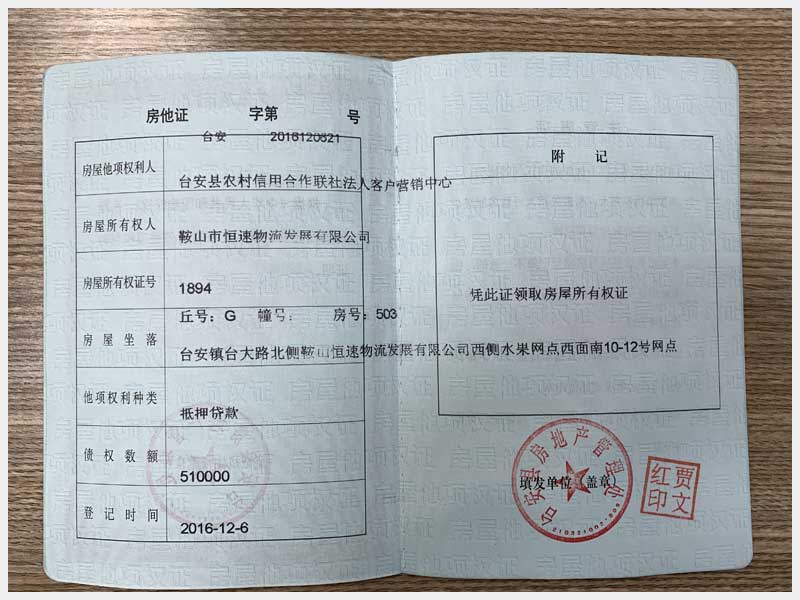 房他证 字第 号
台安 2016120621
房屋他项权利人 台安县农村信用合作联社法人客户营销中心
房屋所有权人 鞍山市恒速物流发展有限公司
房屋所有权证号 1894
丘号：G 幢号： 房号：503
房屋坐落 台安镇台大路北侧鞍山恒速物流发展有限公司西侧水果网点西面南10-12号网点
他项权利种类 抵押贷款
债权数额 510000
登记时间 2016-12-6
附 记
凭此证领取房屋所有权证
台安县房地产管理处
填发单位（盖章）
贾文红印